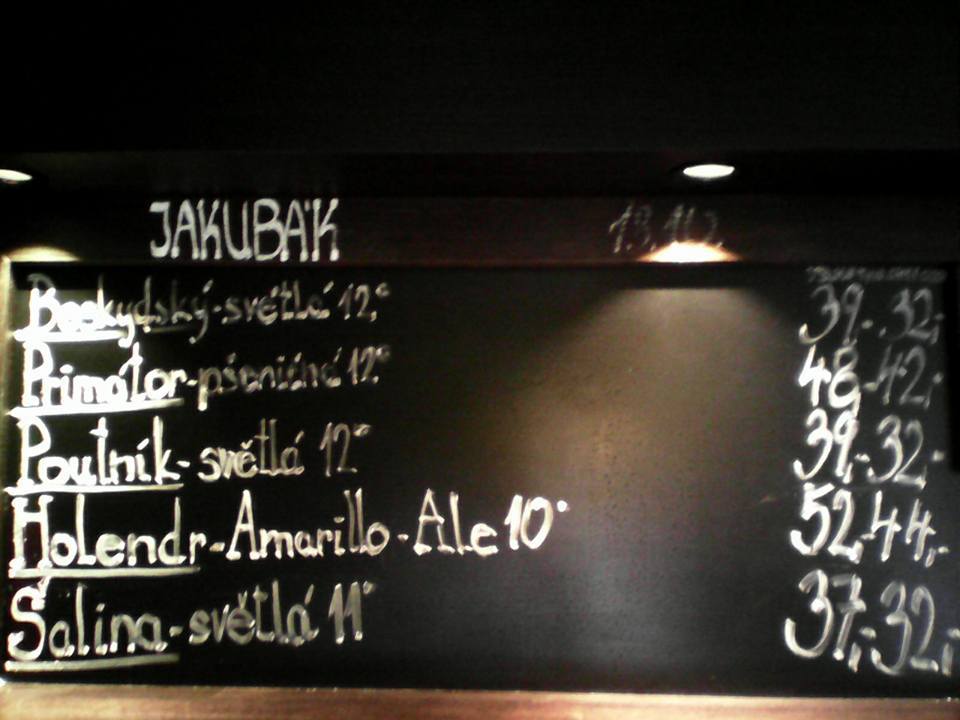 JAKUBÁK
Beskydský-světlá 12° 39,- 32,-
Primátor-pšeničná 12° 48,- 42,-
Poutník- světlá 12° 39,- 32,-
Holendr-Amarillo-Ale 10° 52,- 44,-
Šalina-světlá 11° 37,- 32,-